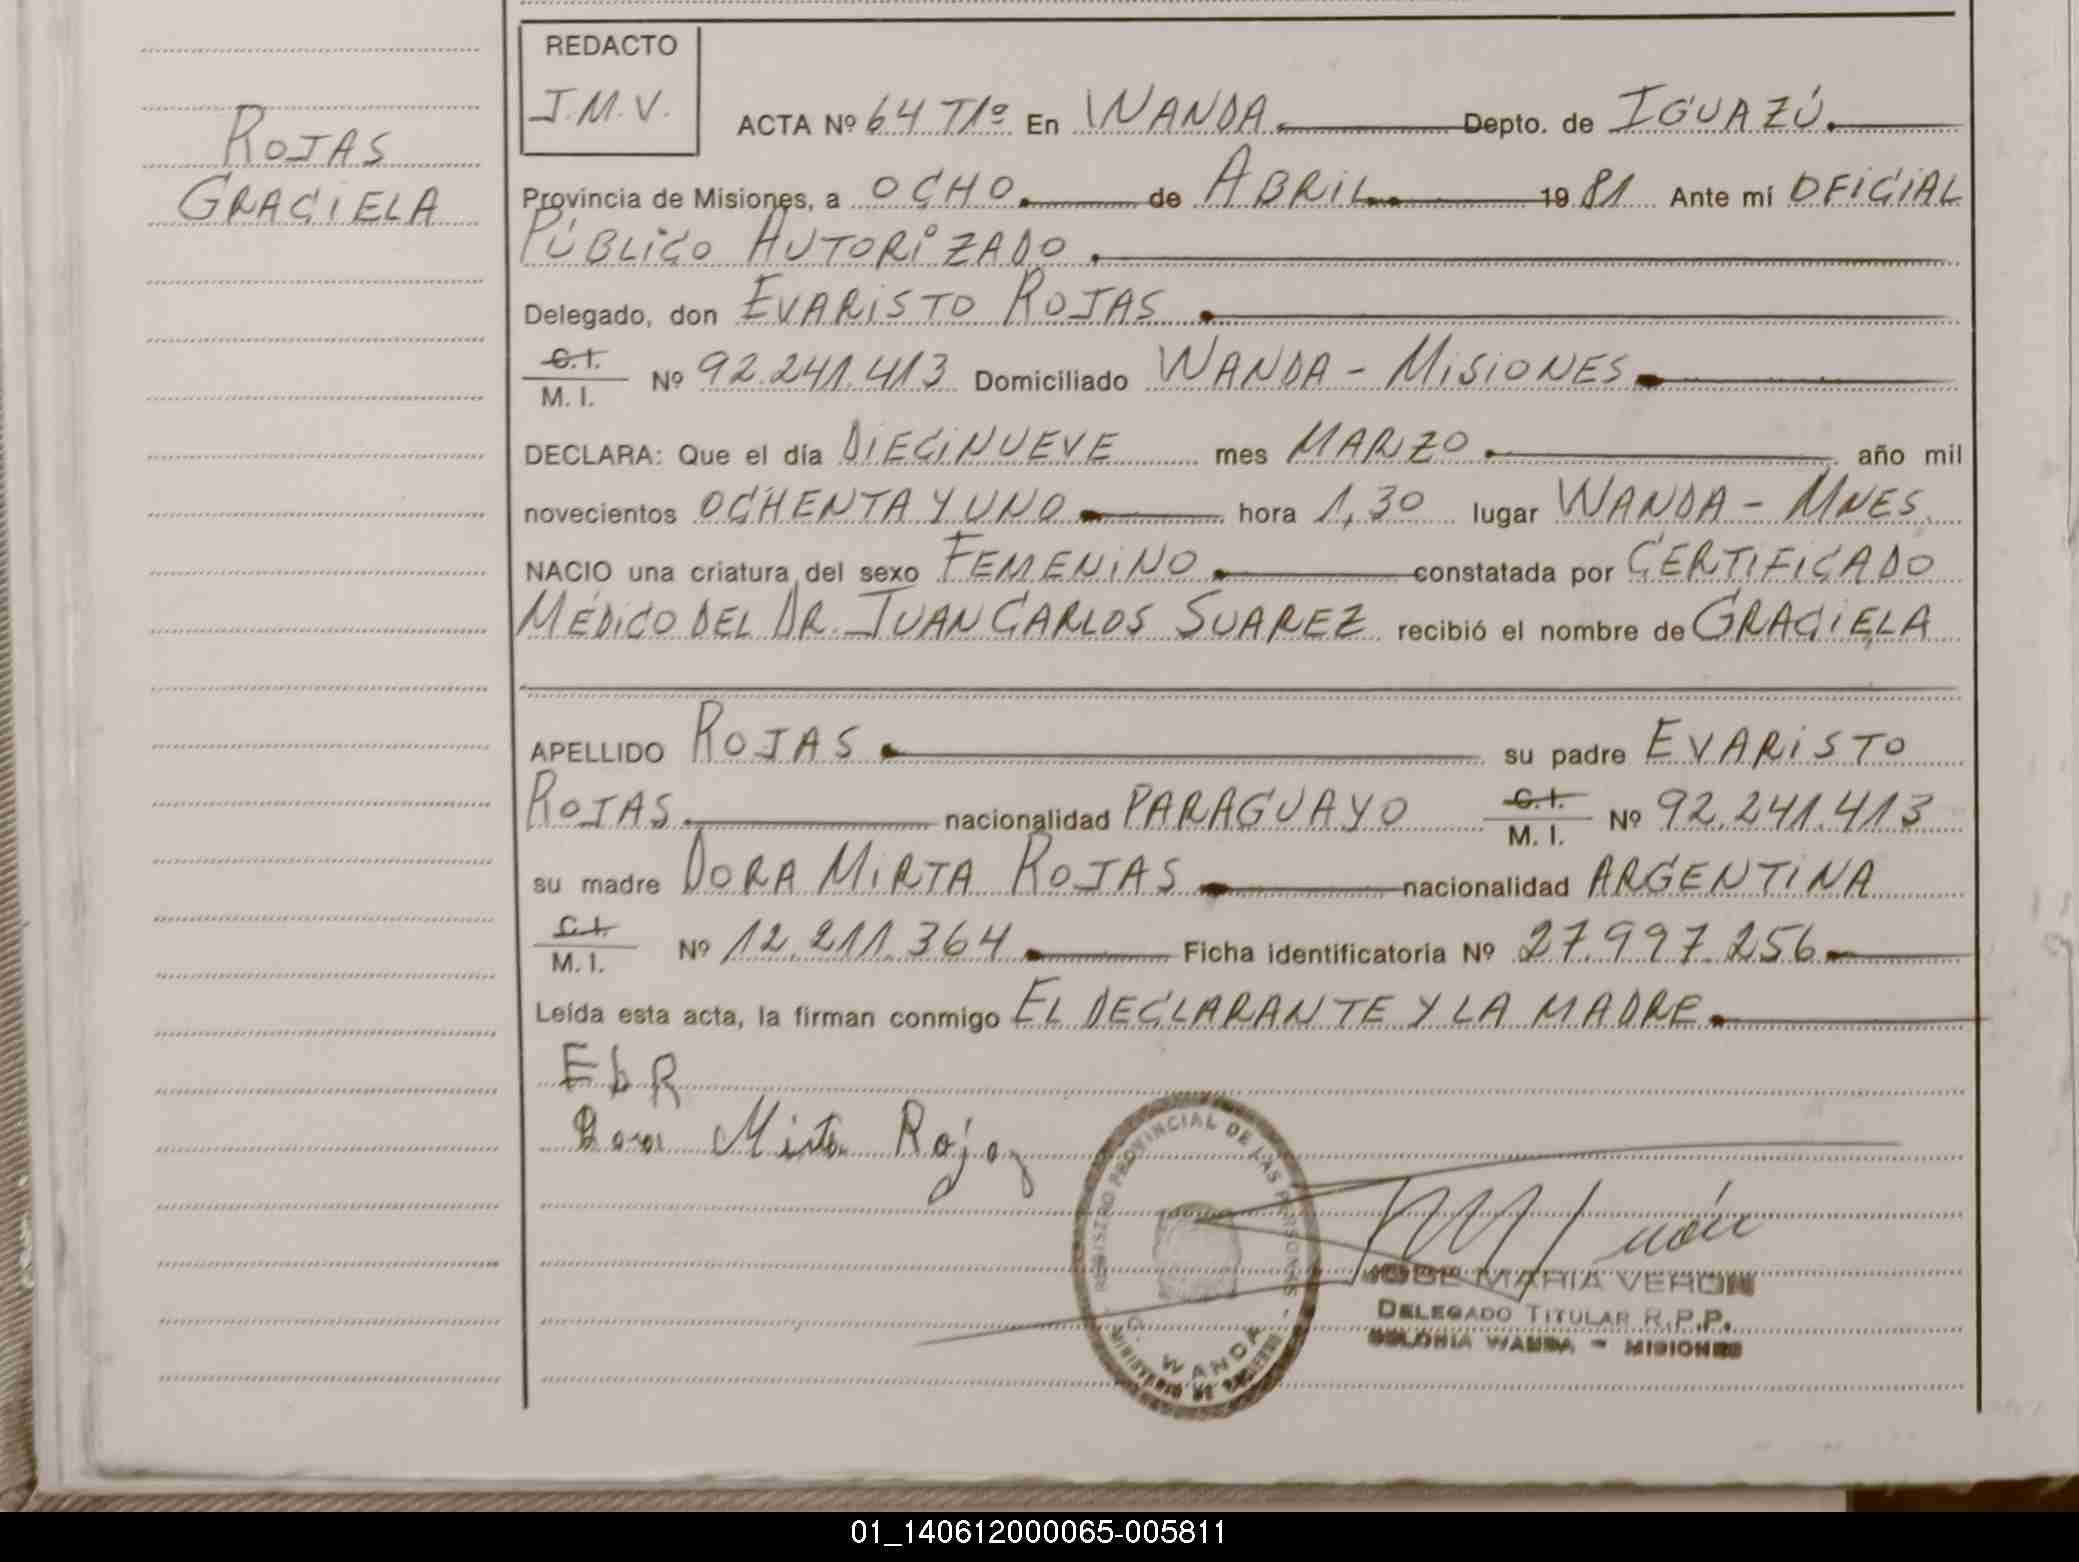 REDACTO
J.M.V.
ROJAS
GRACIELA
ACTA Nº 64 T1º En WANDA Depto. de IGUAZÚ
Provincia de Misiones, a OCHO de ABRIL 1981 Ante mí OFICIAL
PÚBLICO AUTORIZADO
Delegado, don EVARISTO ROJAS
C.I.
M. I. Nº 92.241.413 Domiciliado WANDA - MISIONES
DECLARA: Que el día DIECINUEVE mes MARZO año mil
novecientos OCHENTA Y UNO hora 1,30 lugar WANDA - MNES.
NACIO una criatura del sexo FEMENINO constatada por CERTIFICADO
MÉDICO DEL DR. JUAN CARLOS SUAREZ recibió el nombre de GRACIELA
APELLIDO ROJAS su padre EVARISTO
ROJAS nacionalidad PARAGUAYO C.I. M. I. Nº 92.241.413
su madre DORA MIRTA ROJAS nacionalidad ARGENTINA
C.I.
M. I. Nº 12.211.364 Ficha identificatoria Nº 27.997.256
Leída esta acta, la firman conmigo EL DECLARANTE Y LA MADRE
Dora Mirta Rojas
REGISTRO PROVINCIAL DE LAS PERSONAS
WANDA
MINISTERIO DE GOBIERNO
JOSE MARIA VERON
DELEGADO TITULAR R.P.P.
COLONIA WANDA - MISIONES
01_140612000065-005811